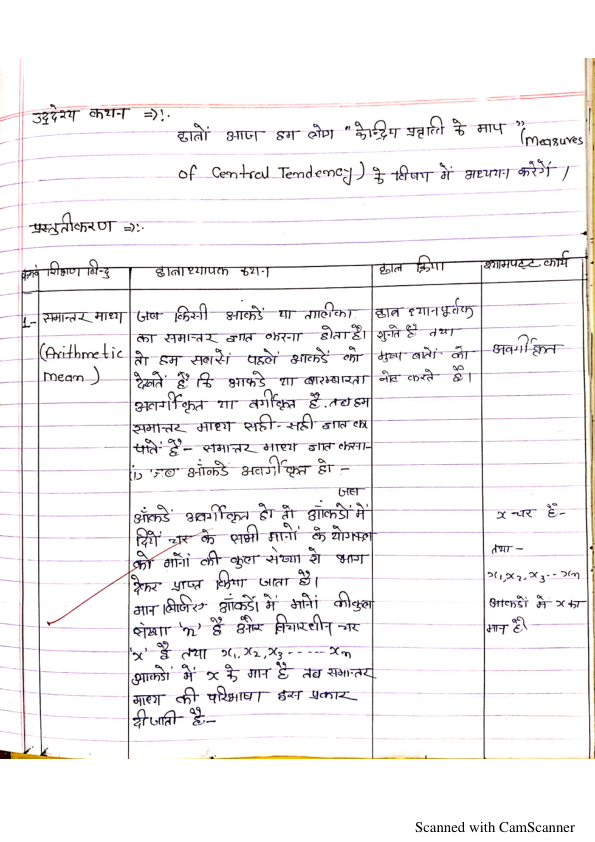 उद्देश्य कथन =>:-
छात्रों आज हम लोग "केन्द्रिय प्रवृत्ति के माप" (Measures
of Central Tendency) के विषय में अध्ययन करेगें।
प्रस्तुतीकरण =>:-
क्र०सं० शिक्षण बिन्दु
छात्राध्यापक कथन
छात्र क्रिया
श्यामपट्ट कार्य
1- समान्तर माध्य
(Arithmetic
mean)
जब किसी आकडें या तालीका
का समान्तर ज्ञात करना होता है।
तो हम सबसें पहलें आकडें को
देखतें हैं कि आकडे या बारम्बारता
अवर्गीकृत या वर्गीकृत है. तब हम
समान्तर माध्य सही-सही ज्ञात कर
पातें हैं- समान्तर माध्य ज्ञात करना-
(i) जब आँकडें अवर्गीकृत हो -
जब
आँकडें अवर्गीकृत हो तो आँकडों में
दियें चर के सभी मानों के योगफल
को मानों की कुल संख्या से भाग
देकर प्राप्त किया जाता है।
मान लिजिए आँकडों में मानों की कुल
संख्या 'n' है और विचारधीन चर
'x' है तथा x₁, x₂, x₃ ----- xn
आकडों में x के मान हैं तब समान्तर
माध्य की परिभाषा इस प्रकार
दी जाती है-
छात्र ध्यानपूर्वक
सुनते हैं तथा
मुख्य बातों को
नोट करते हैं।
अवर्गीकृत
x चर है-
तथा -
x₁, x₂, x₃ -- xn
आकडों में x का
मान है।
Scanned with CamScanner